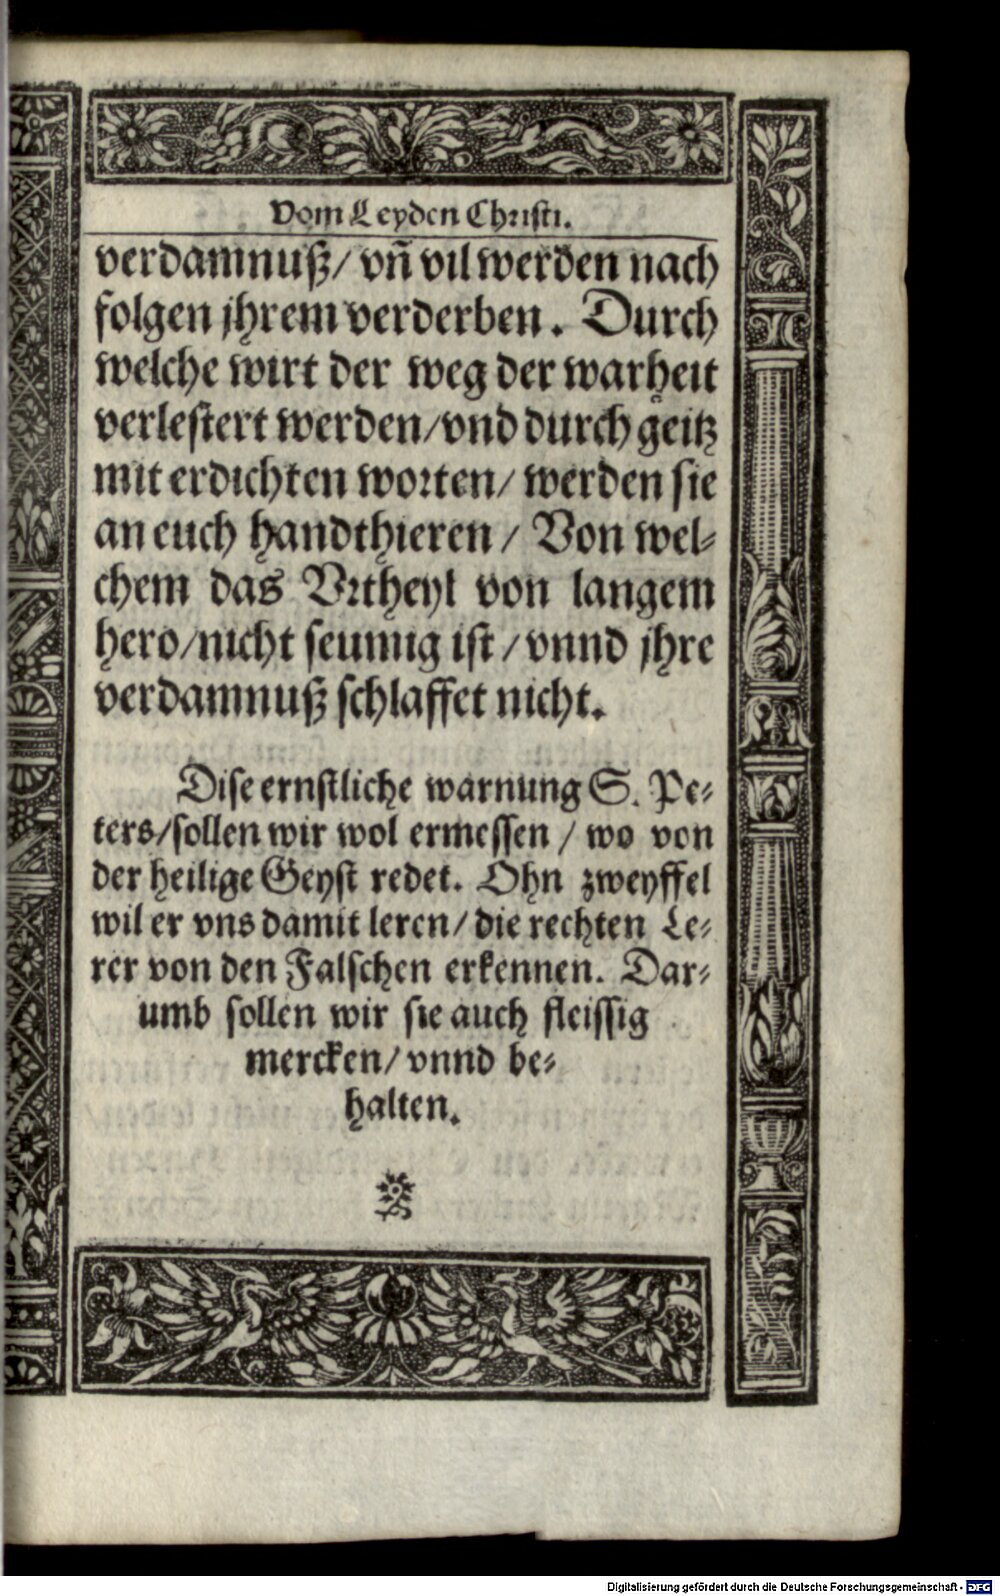 Vom Leyden Christi.
verdamnuß/ vñ vil werden nach
folgen jhrem verderben. Durch
welche wirt der weg der warheit
verlestert werden/vnd durch geitz
mit erdichten worten/ werden sie
an euch handthieren / Von wel-
chem das Vrtheyl von langem
hero/nicht seumig ist / vnnd jhre
verdamnuß schlaffet nicht.
Dise ernstliche warnung S. Pe-
ters/sollen wir wol ermessen / wo von
der heilige Geyst redet. Ohn zweyffel
wil er vns damit leren/ die rechten Le-
rer von den Falschen erkennen. Dar-
umb sollen wir sie auch fleissig
mercken/ vnnd be-
halten.
Digitalisierung gefördert durch die Deutsche Forschungsgemeinschaft - DFG